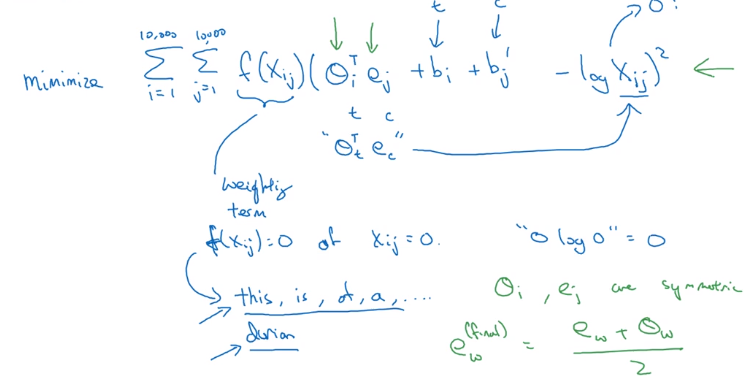 t c 0.
minimize 10,000 Σ i=1 10,000 Σ j=1 f(X_ij) (θ_i^T e_j + b_i + b_j' - log X_ij)^2 ←
t c
"θ_t^T e_c"
weighting
term
f(X_ij)=0 if X_ij=0. "0 log 0" = 0
this, is, of, a, ....
durian
θ_i, e_j are symmetric
e_w^(final) = e_w + θ_w / 2